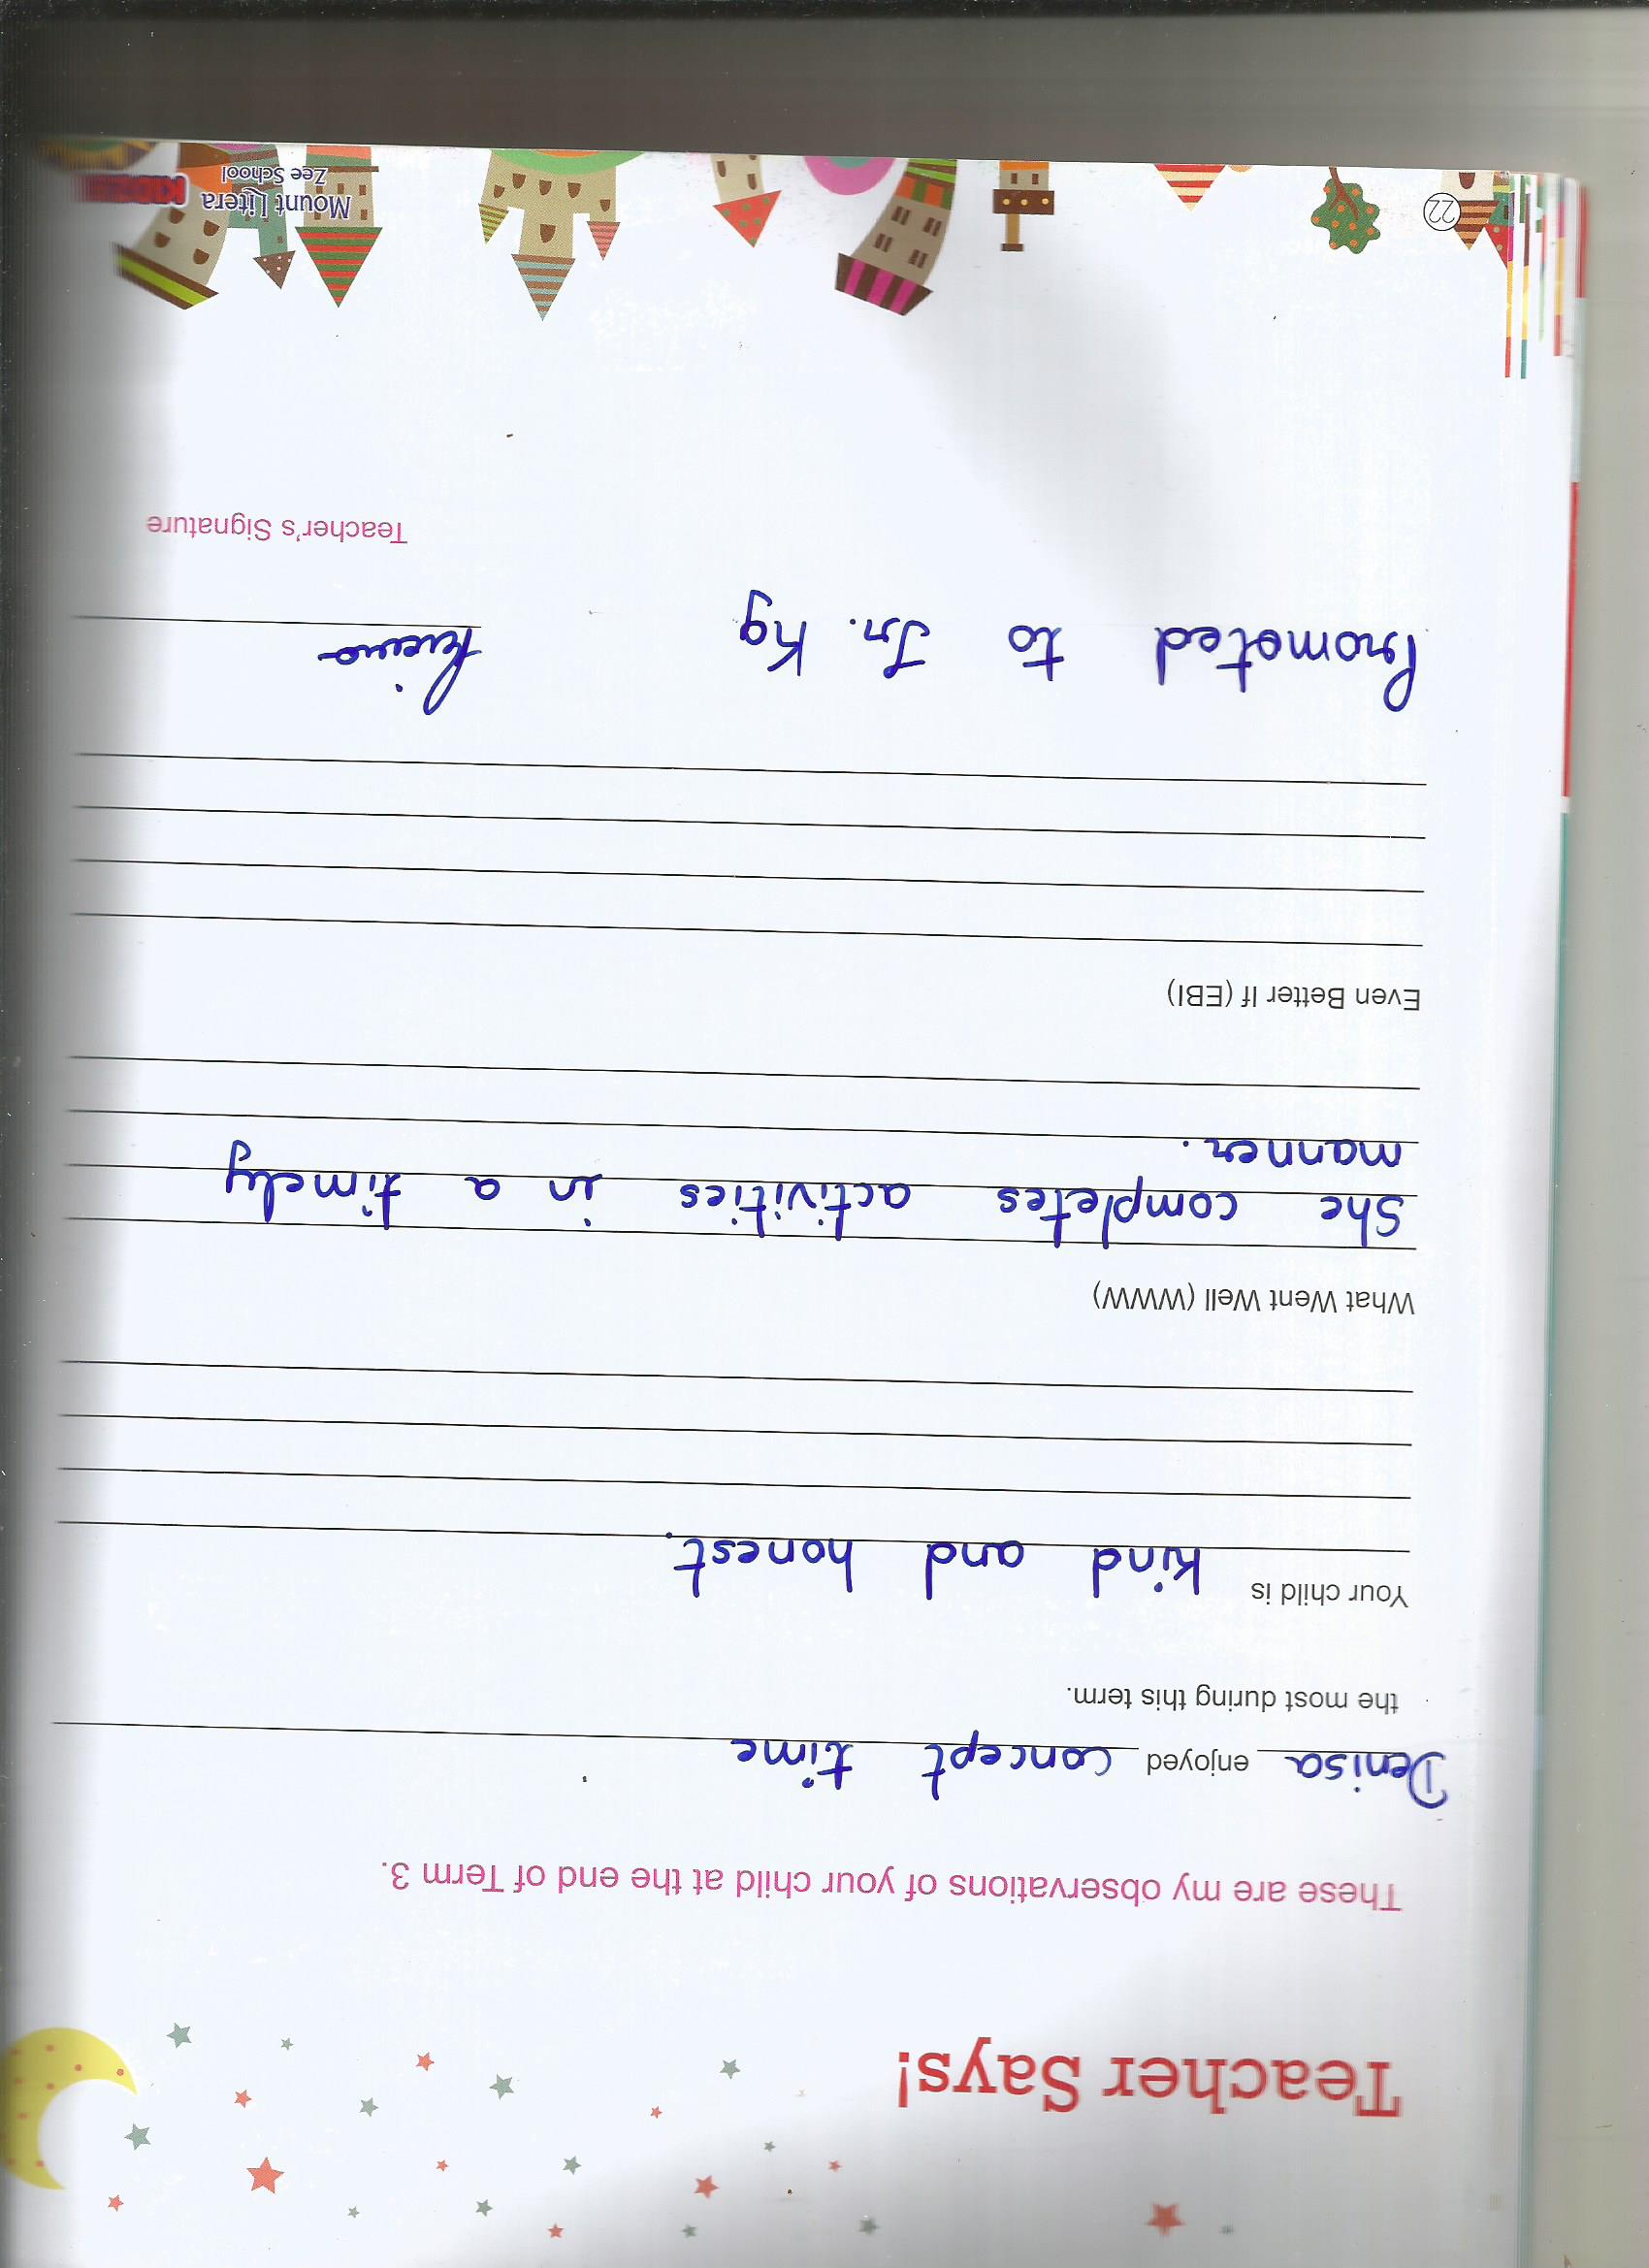 Teacher Says!
These are my observations of your child at the end of Term 3.
Denisa enjoyed concept time
the most during this term.
Your child is kind and honest.
What Went Well (WWW)
She completes activities in a timely
manner.
Even Better If (EBI)
Promoted to Jr. Kg
Teacher's Signature
22
Mount Litera
Zee School